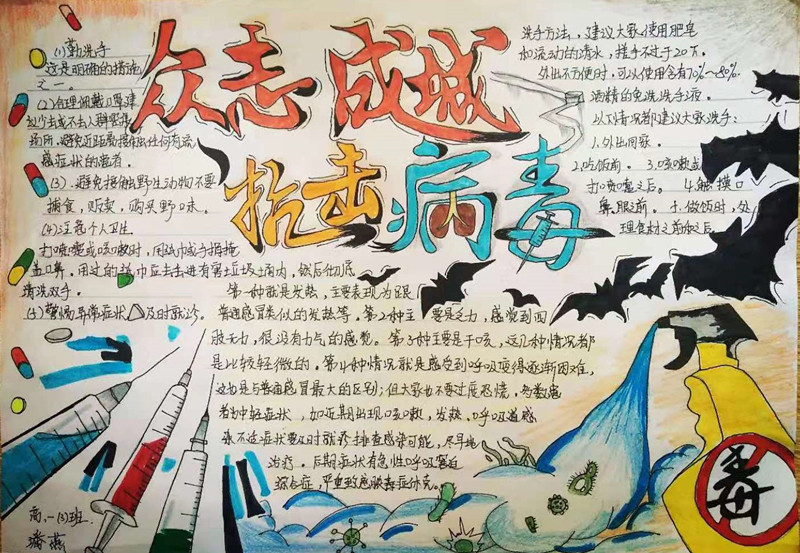 众志成城
抗击病毒
(1)勤洗手
这是明确的措施
之一。
(2)合理佩戴口罩建
议少去或不去人群密集
场所,避免近距离接触任何有流
感症状的患者。
(3)、避免接触野生动物不要
捕食,贩卖,购买野味。
(4)注意个人卫生
打喷嚏或咳嗽时,用纸巾或手捂掩
盖口鼻,用过的纸巾应丢进有害垃圾土筒内,然后彻底
清洗双手。
及时就诊。
洗手方法:建议大家使用肥皂
和流动的清水,搓手不过于20下。
外出不方便时,可以使用含有70%~80%
酒精的免洗洗手液。
以下情况都建议大家洗手:
1.外出回家。
2.吃饭前。3.咳嗽或
打喷嚏之后。4.触摸口
鼻眼前。5.做饭时,处
理食材之前和之后。
第一种就是发热,主要表现为跟
普通感冒类似的发热等。第2种主要是乏力,感觉到四
肢无力,很没有力气的感觉。第3种主要是干咳,这几种情况都
是比较轻微的。第4种情况就是感受到呼吸变得逐渐困难,
这也是与普通感冒最大的区别;但大家也不要过度恐慌,多数患
者为中轻症状,如近期出现咳嗽、发热、呼吸道感
染不适症状要及时就诊排查感染可能,尽早地
治疗。后期症状有急性呼吸窘迫
综合症,严重致感脓毒症休克。
高一(3)班
潘燕
毒